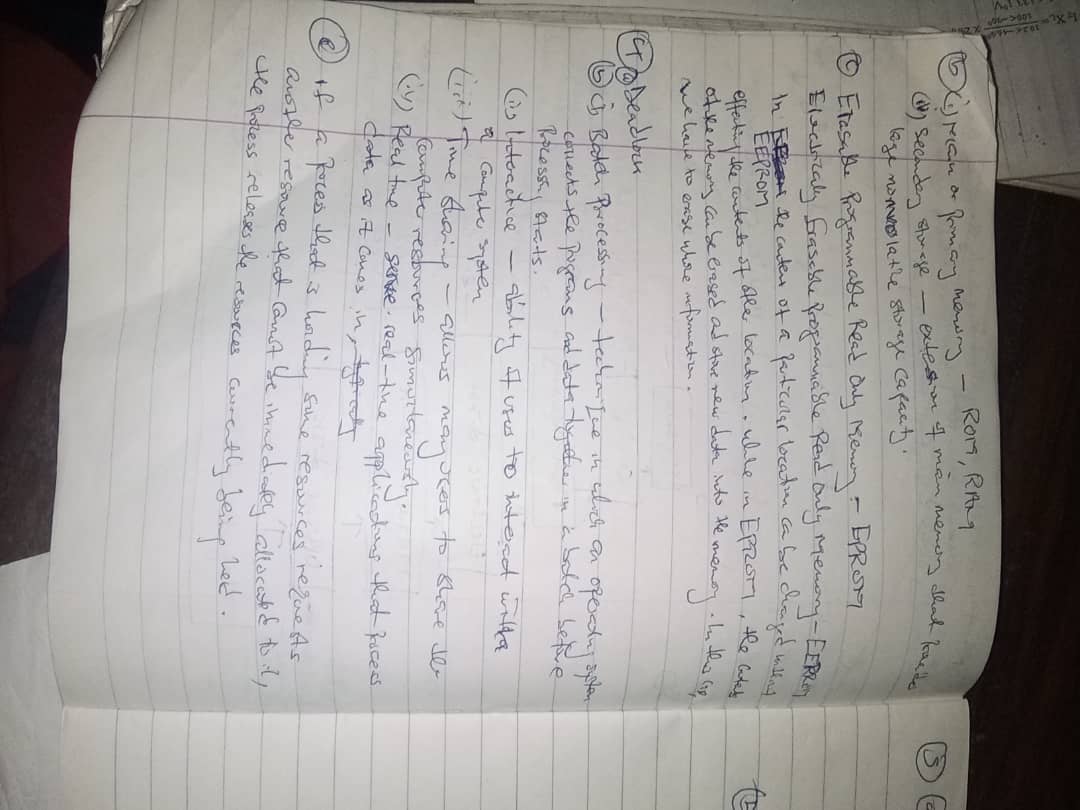 (b) (i) Mean or primary memory — ROM, RAM
(ii) Secondary storage — extension of main memory that provides
large nonvolatile storage capacity.
(c) Erasable Programmable Read Only Memory - EPROM
Electrically Erasable Programmable Read Only Memory - EEPROM
In the content of a particular location can be changed without
EEPROM
effecting the contents of other location. While in EPROM, the
of the memory can be erased and store new data into the memory. In this
we have to erase whole information.
(4) (a) Deadlock
(b) (i) Batch Processing — technique in which an operating system
collects the programs and data together in a batch before
Processing starts.
(ii) Interactive — ability of users to interact with
a computer system
(iii) Time Sharing — allows many users to share the
Computer resources simultaneously
(iv) Real time - real-time applications that process
data as it comes in,
(e) If a process that is holding some resources requests
another resource that cannot be immediately allocated to it,
the process release the resources currently being held.
(5)